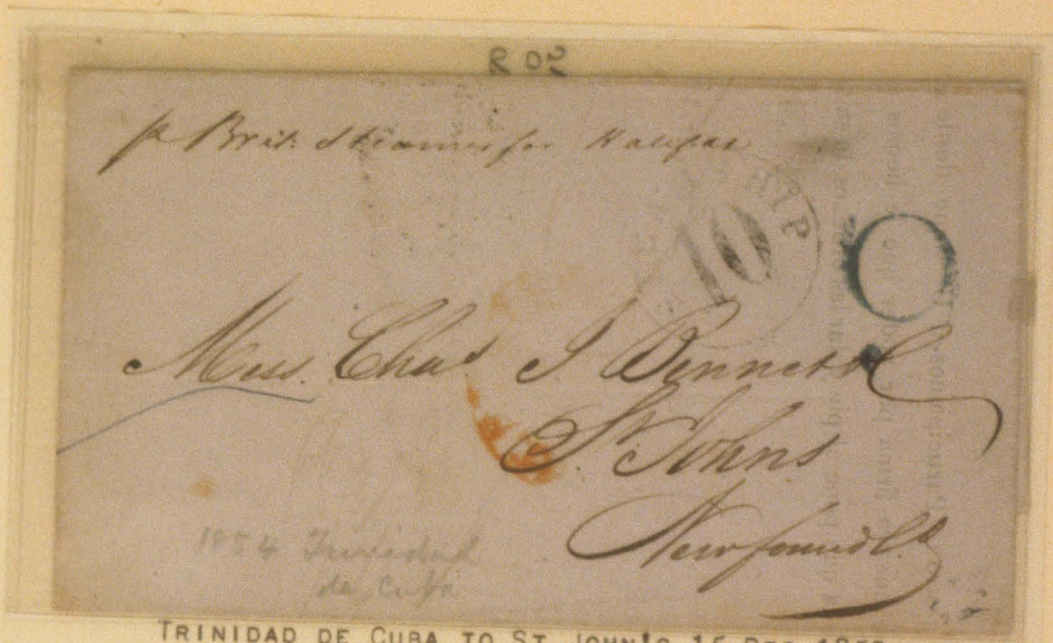 R 02
p Brit. Steamer for Halifax
SHIP
10
Mess. Chas J Bennet &
St. Johns
Newfoundld
1854 Trinidad
de Cuba
TRINIDAD DE CUBA TO ST. JOHN'S 15 DEC